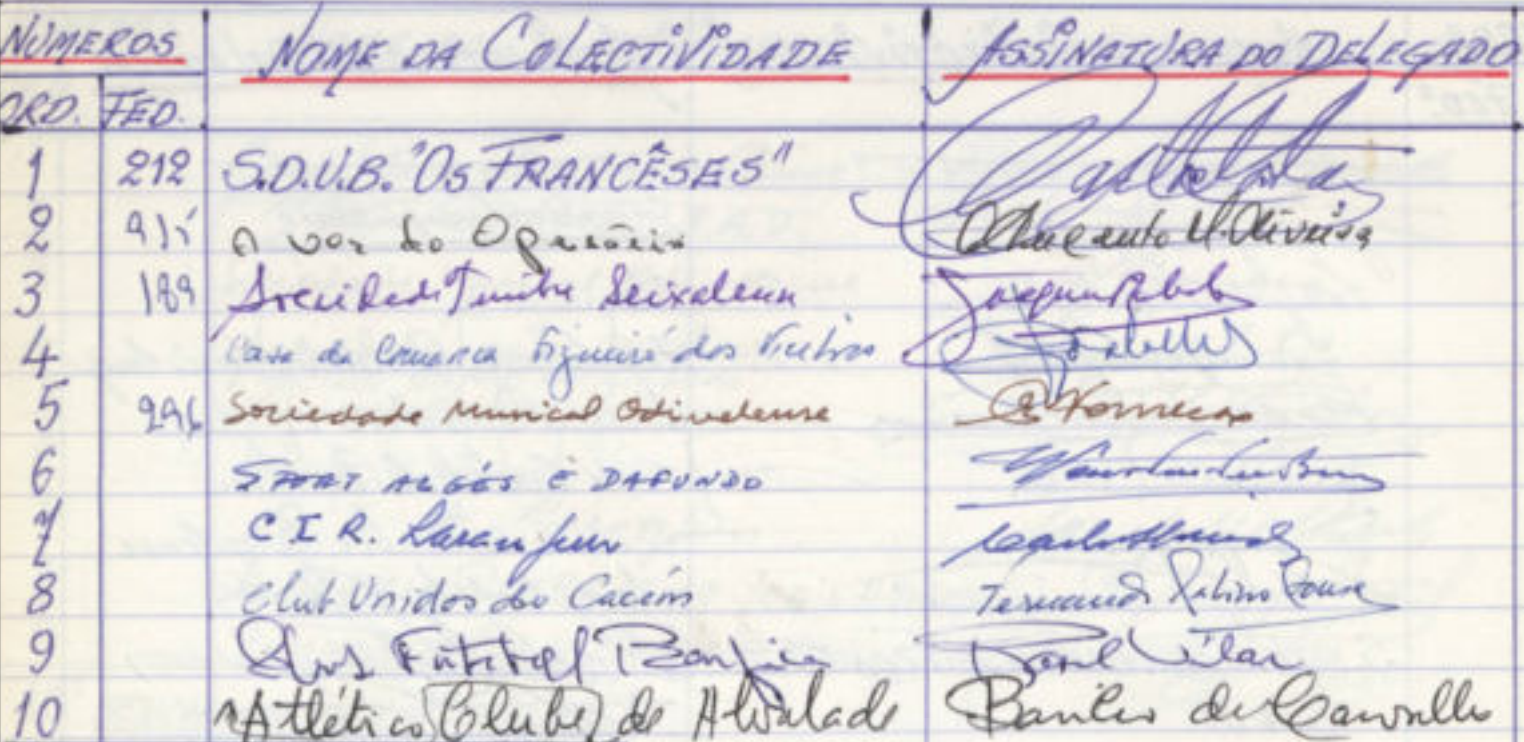 NÚMEROS NOME DA COLECTIVIDADE ASSINATURA DO DELEGADO
ORD. FED.
1 212 S.D.U.B. "OS FRANCÊSES"
2 915 A voz do Operário Oliveira
3 189 Sociedade Timbre Seixalense Joaquim
4 Casa da Comarca Figueiró dos Vinhos
5 296 Sociedade Musical Odivelense Fonseca
6 SPORT ALGÉS E DAFUNDO
7 C I R. Laranjeiro Carlos
8 Club Unidos do Cacém Fernando Sousa
9 Futebol Benfica Vilar
10 Atlético Clube de Alvalade de Carvalho